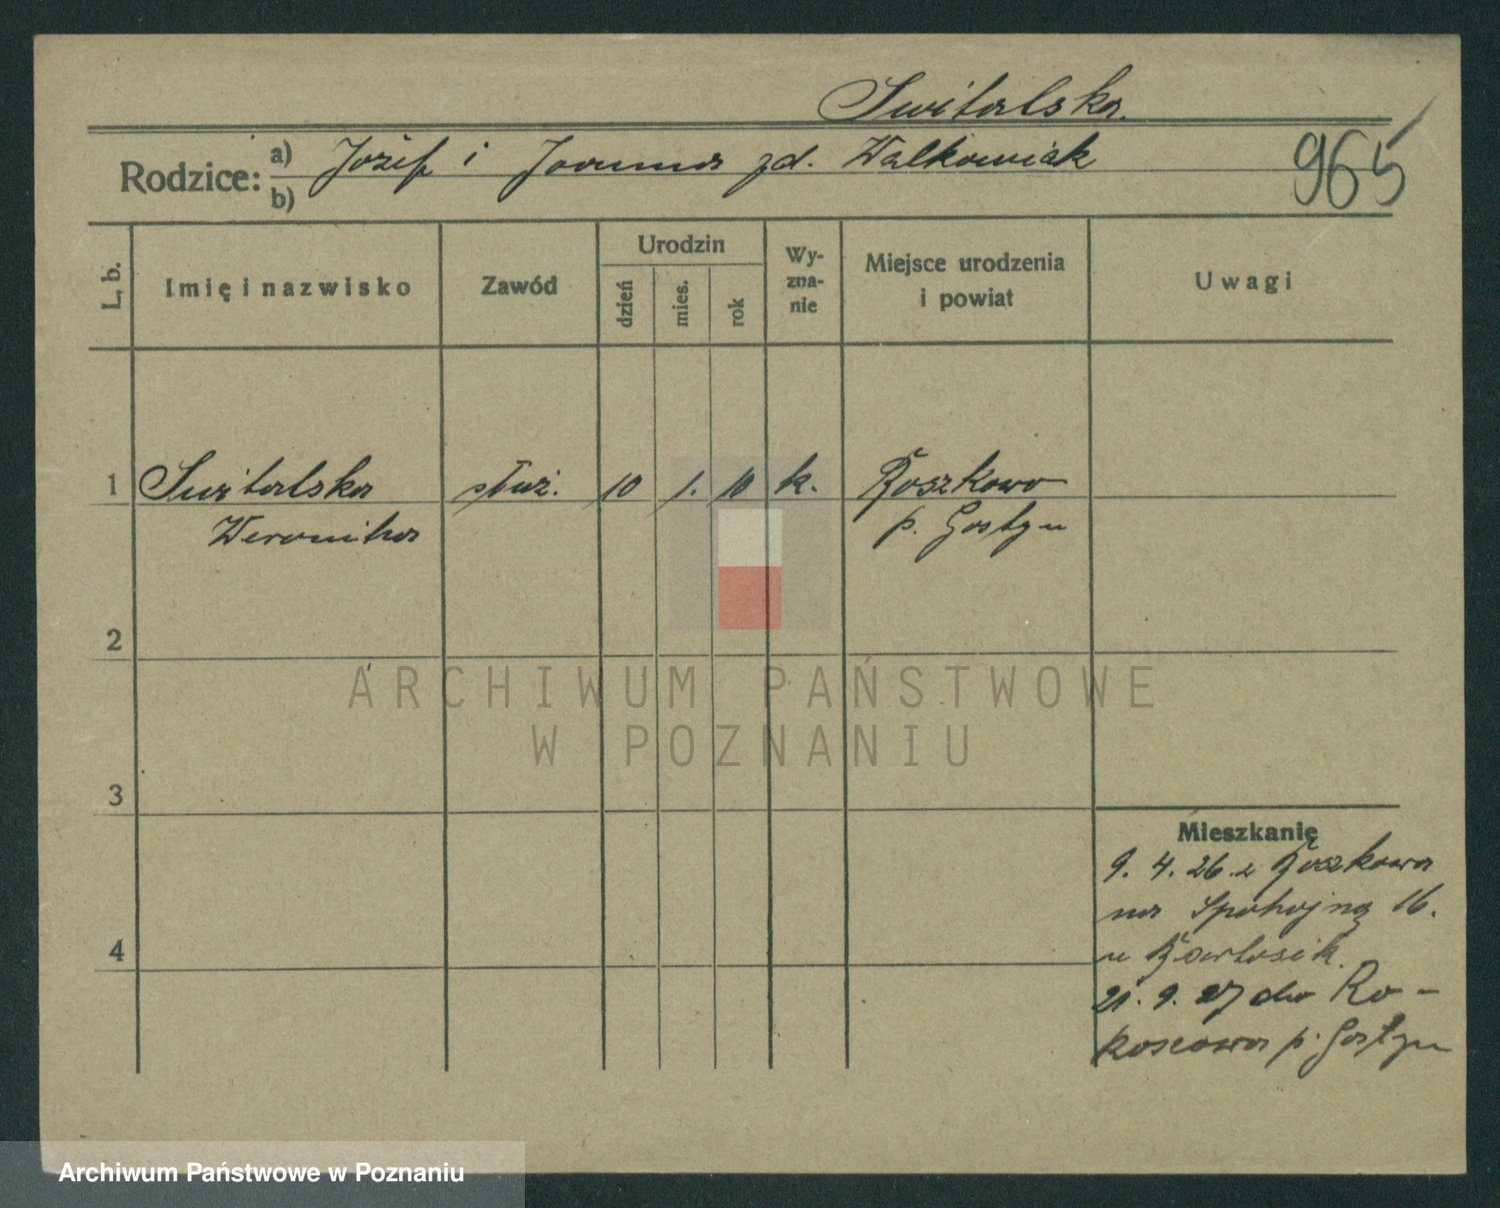 Switalska.
965
Rodzice: a) Józef i Joanna zd. Walkowiak
b)
L. b.
Imię i nazwisko
Zawód
Urodzin
dzień
mies.
rok
Wy-
zna-
nie
Miejsce urodzenia
i powiat
Uwagi
1 Switalska służ. 10 1. 10 k. Roszkowo
Weronika p. Gostyn
2
ARCHIWUM PAŃSTWOWE
W POZNANIU
3
Mieszkanie
9. 4. 26 z Roszkowa
na Spokojną 16.
u Bartosik.
4
21. 9. 27 do Ro-
koszowa p. Gostyn
Archiwum Państwowe w Poznaniu